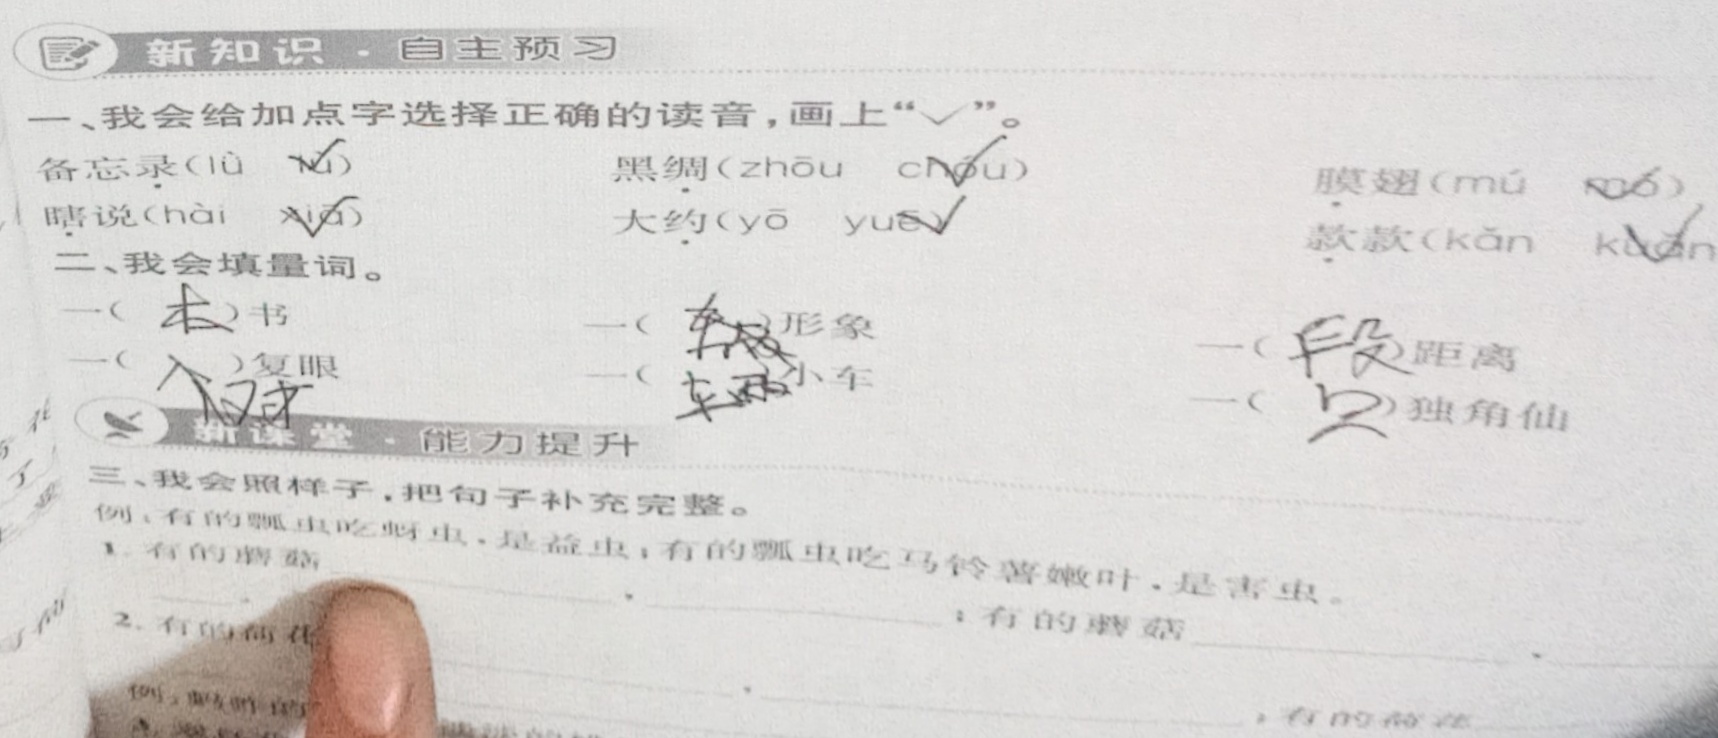 新知识·自主预习
一、我会给加点字选择正确的读音，画上“✓”。
备忘录(lǜ lù) 黑绸(zhōu chóu) 膜翅(mú mó)
瞎说(hài xiā) 大约(yō yuē) 款款(kǎn kuǎn
二、我会填量词。
一(本)书 一( )形象 一(段)距离
一(对)复眼 一(辆)小车 一(只)独角仙
新课堂·能力提升
三、我会照样子，把句子补充完整。
例：有的瓢虫吃蚜虫，是益虫；有的瓢虫吃马铃薯嫩叶，是害虫。
1. 有的蘑菇 ， ；有的蘑菇 ，
2. 有的荷花 ， ；有的荷花